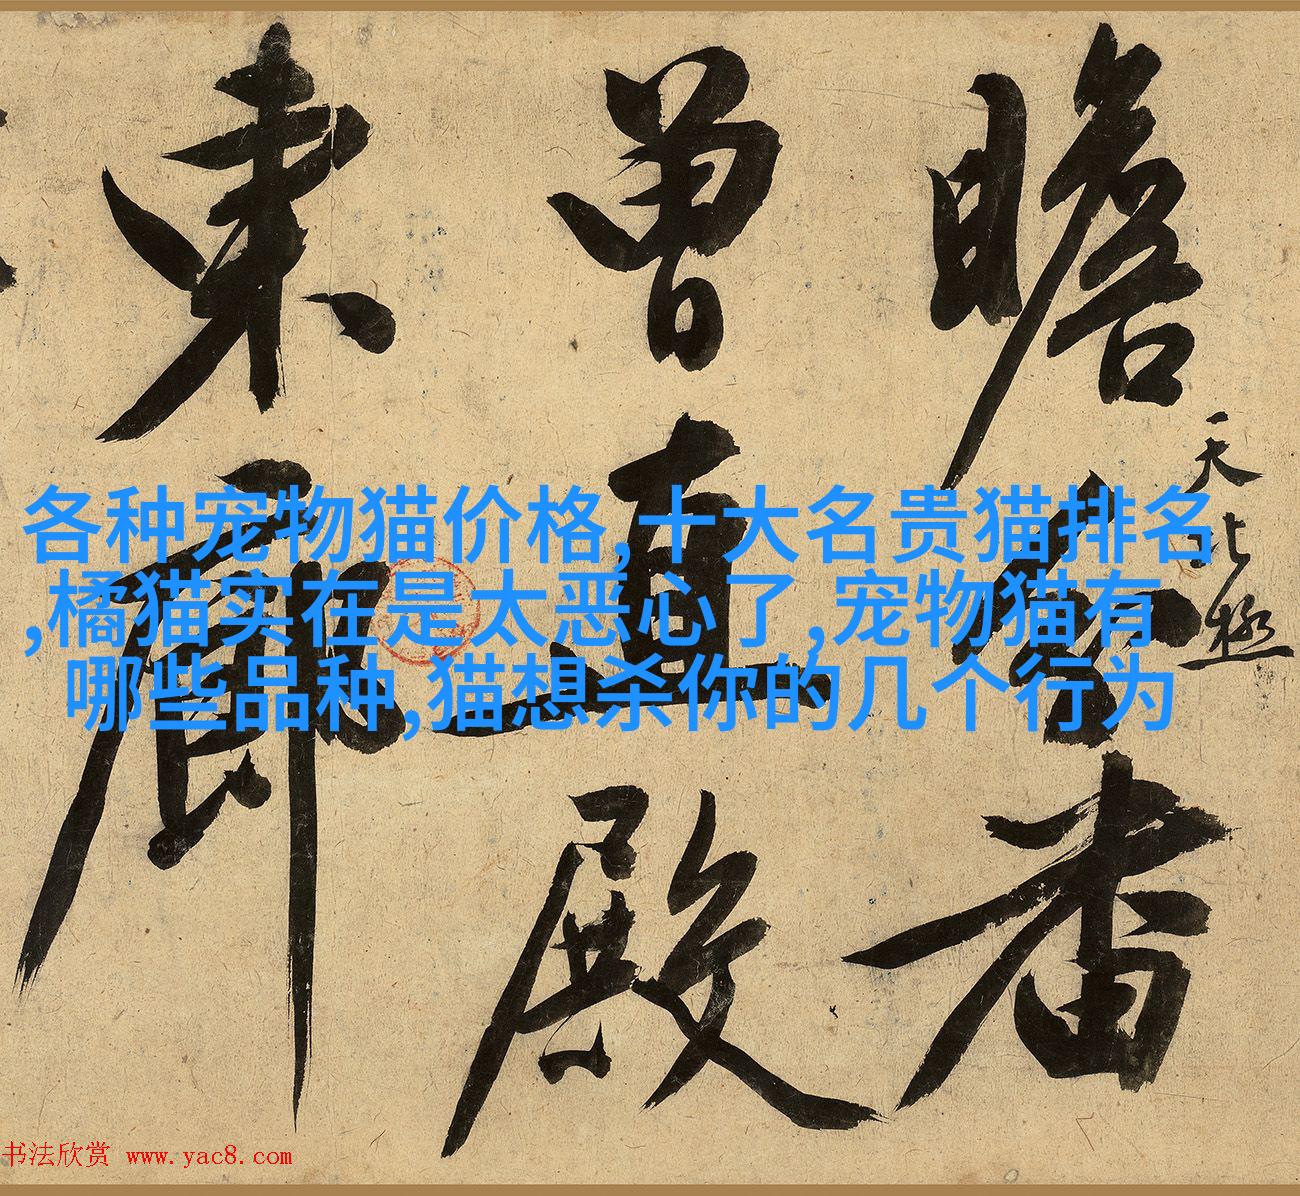 瞻
番
天北極
曾
直
殿
東
廊
各种宠物猫价格,十大名贵猫排名
,橘猫实在是太恶心了,宠物猫有
哪些品种,猫想杀你的几个行为
书法欣赏 www.yac8.com